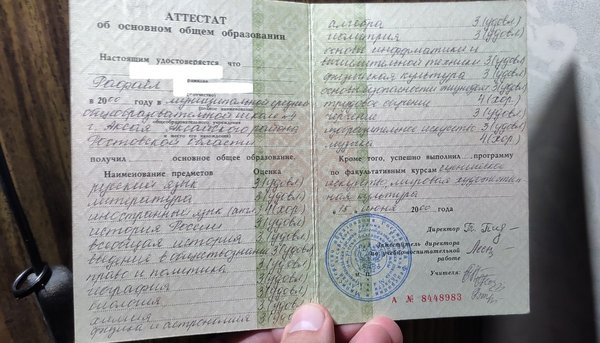 АТТЕСТАТ
об основном общем образовании
Настоящим удостоверяется, что
Рафаил
(отчество)
в 2000 году в муниципальной средней
общеобразовательной школе №
г. Аксая Аксайского района
Ростовской области
получил основное общее образование.
Наименование предметов Оценка
русский язык 3 (удовл)
литература 3 (удовл)
иностранный язык (англ) 4 (хор)
история России 3 (удовл)
всеобщая история 3 (удовл)
введение в обществознание 3 (удовл)
право и политика 3 (удовл)
география 3 (удовл)
биология 3 (удовл)
химия 3 (удовл)
физика и астрономия 3
алгебра 3 (удовл)
геометрия 3 (удовл)
основы информатики и
вычислительной техники 3 (удовл)
физическая культура 3 (удовл)
основы безопасности 3 (удовл)
трудовое обучение 4 (хор.)
черчение 3 (удовл)
изобразительное искусство 3 (удовл)
музыка 4 (хор)
Кроме того, успешно выполнил программу
по факультативным курсам
искусство, мировая художествен
ная культура
« 15 » июня 2000 года
Директор
Заместитель директора
по учебно-воспитательной
работе
Учителя:
А № 8448983